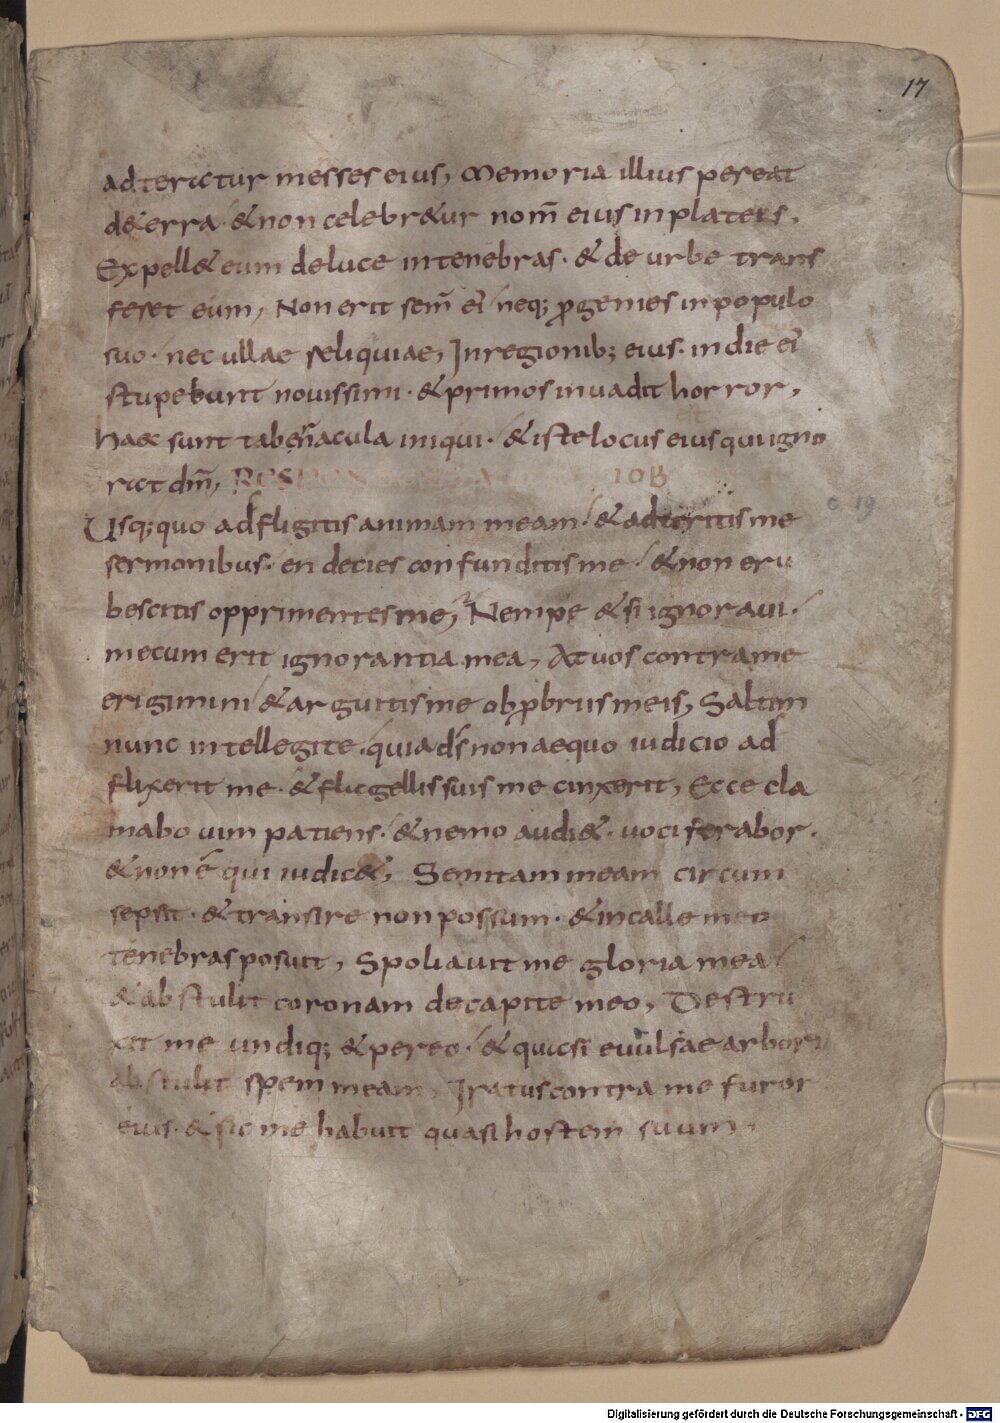 17
adteratur messes eius, Memoria illius pereat
d&erra & non celebr&ur nom̄ eius inplateis.
Expell& eum deluce intenebras· & de urbe trans
feret eum, Non erit sem̄ ei' neq; ꝓgenies inpopulo
suo· nec ullae reliquiae, Inregionib; eius· indie ei'
stupebunt nouissimi· & primos inuadit horror,
Haec sunt tabern̄acula iniqui· & iste locus eius qui igno
rat dm̄, RESPON IOB
Usq;quo adfligitis animam meam/ & adteritis me
c 19
sermonibus· en decies confunditis me/ & non eru
bescitis opprimentes me, Nempe & si ignoraui·
mecum erit ignorantia mea, At uos contra me
erigimini/ & arguitis me obꝓbriis meis, Saltim
nunc intellegite· quia ds̄ non aequo iudicio ad
flixerit me· & flagellis suis me cinxerit, Ecce cla
mabo uim patiens· & nemo audi&· uociferabor·
& non ē qui iudic&, Semitam meam circum
sepsit· & transire non possum· & incalle meo
tenebras posuit, Spoliauit me gloria mea/
& abstulit coronam decapite meo, Destru
xit me undiq; & pereo·/ & quasi euulsae arbori
abstulit spem meam, Iratus contra me furor
eius· & sic me habuit quasi hostem suum·
Digitalisierung gefördert durch die Deutsche Forschungsgemeinschaft - DFG